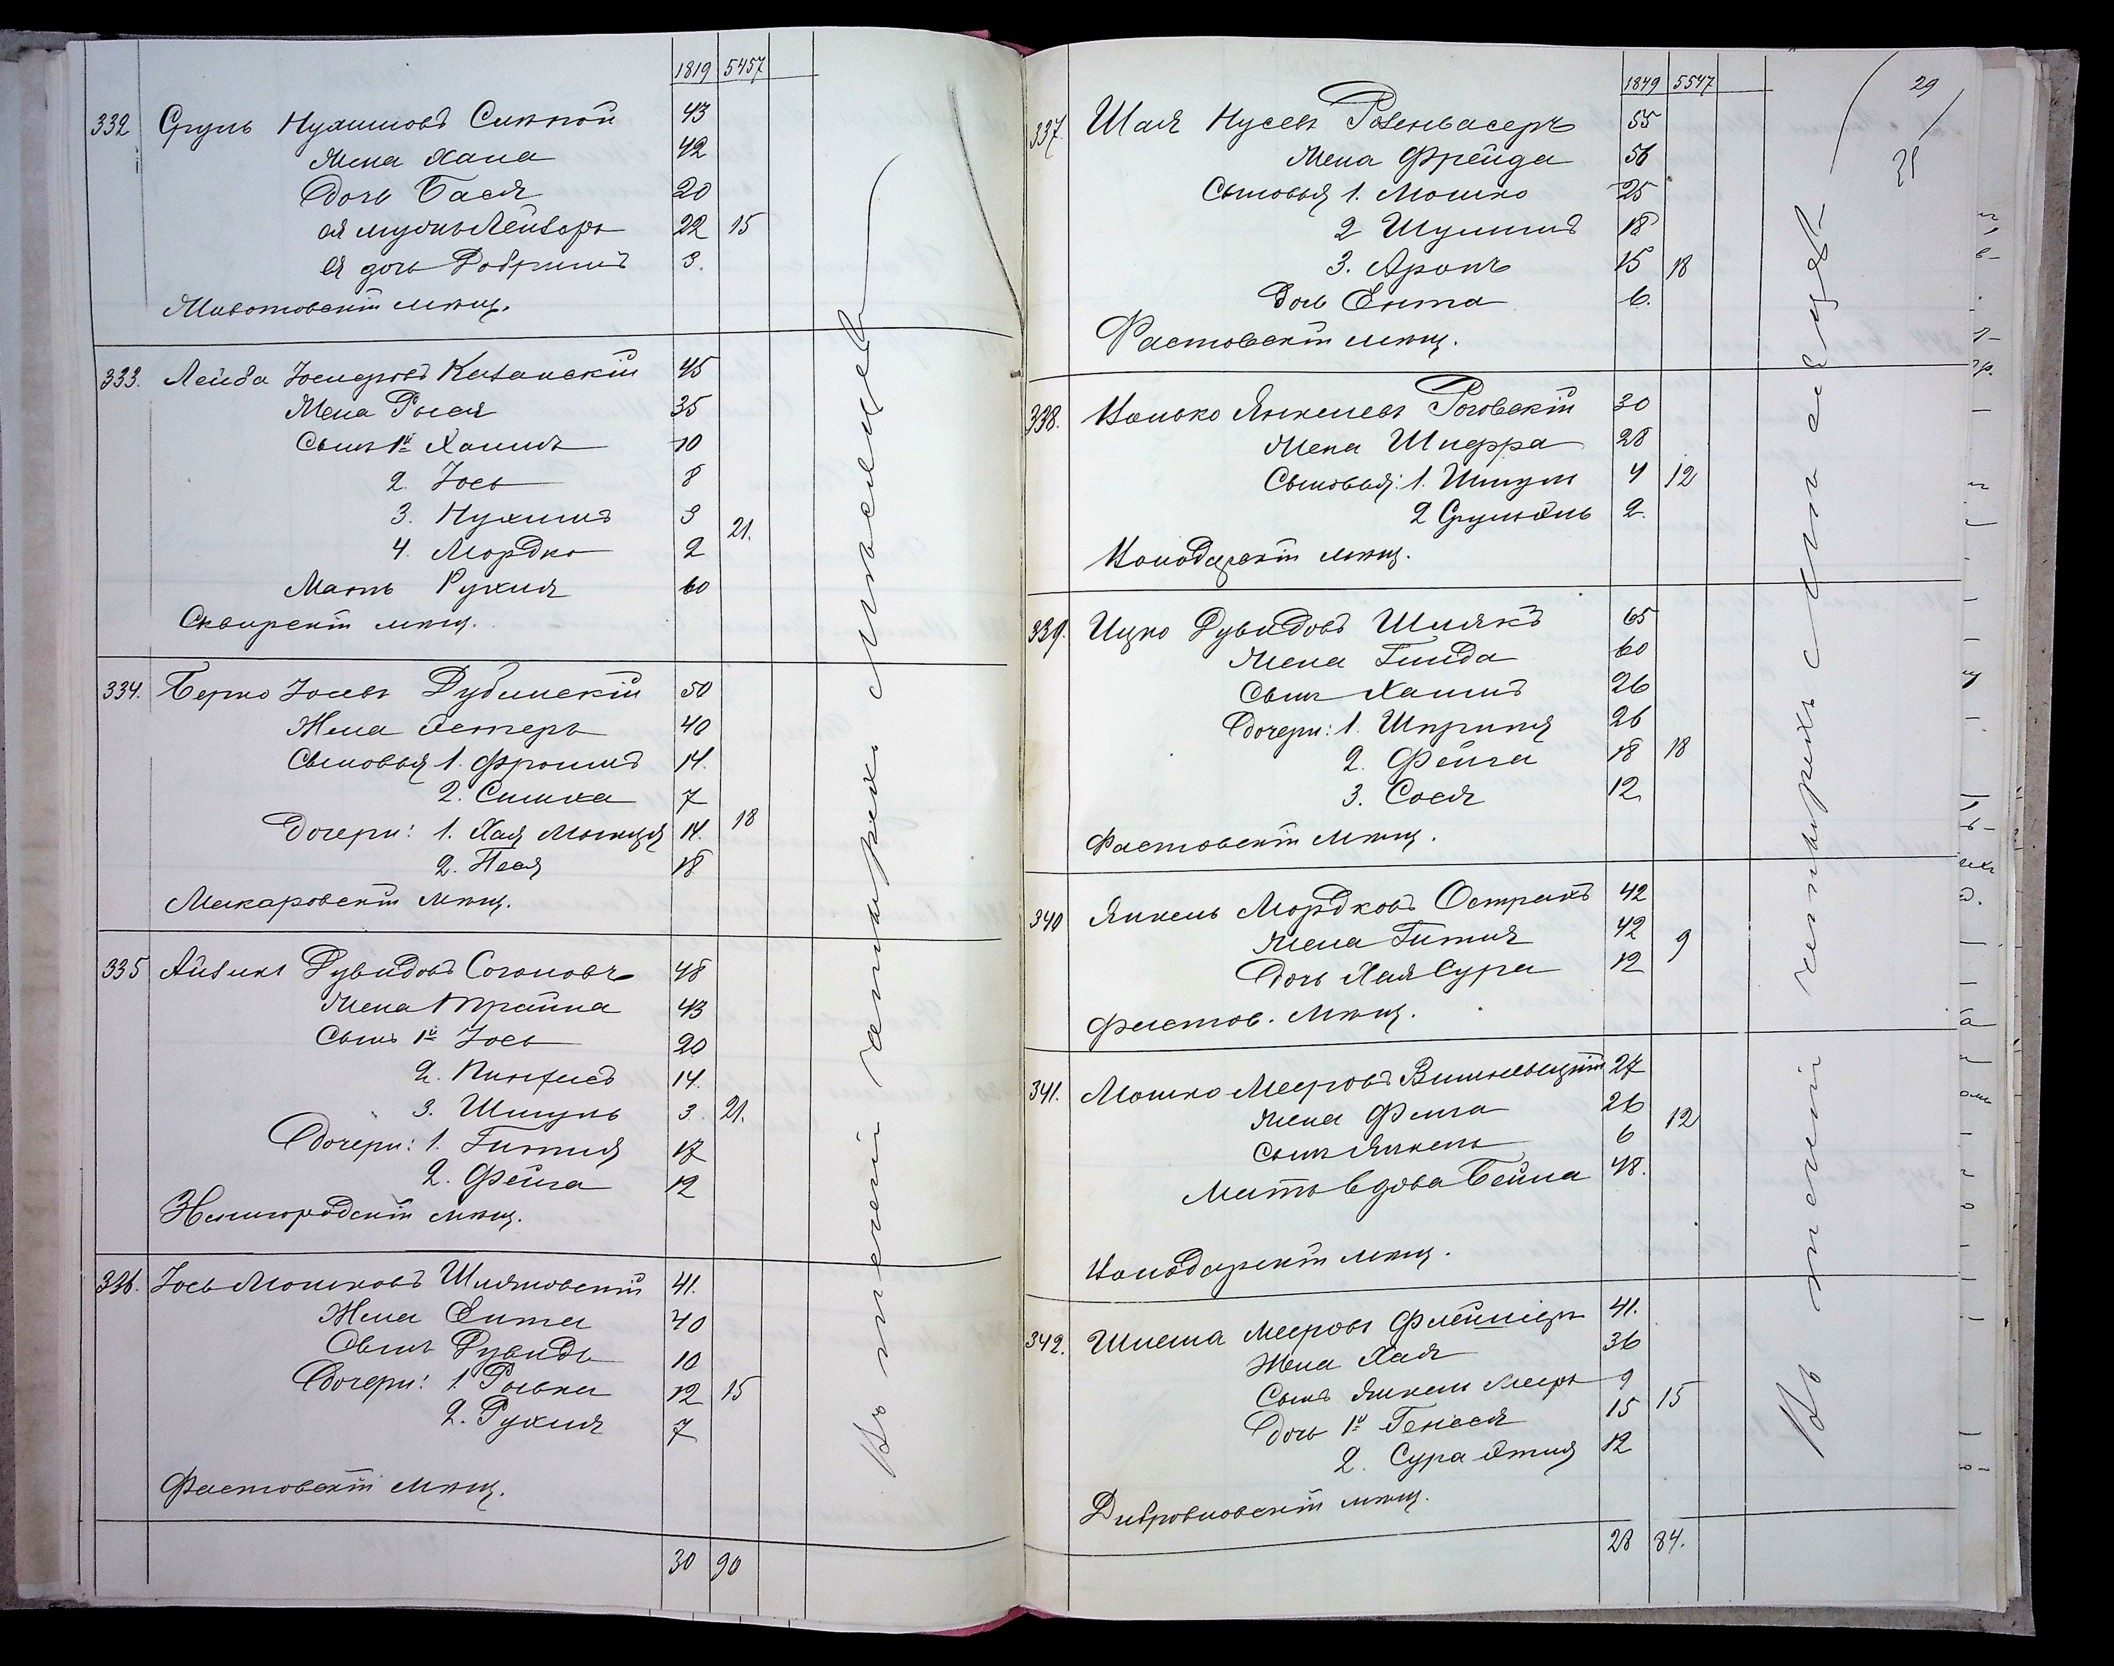 1819 5457
332 Сруль Нухимовъ Ситной 43
Жена Хана 42
Дочь Бася 20
ея мужъ Лейзоръ 22 15
ея дочь Добришъ 3.
Животовскій мѣщ.
333. Лейба Іосиповъ Казанскій 45
Жена Рыся 35
Сынъ 1й Хаимъ 10
2. Іось 8
3. Нухимъ 3
21.
4. Мордко 2
Мать Рухля 60
Сквирскій мѣщ.
334. Берко Іосевъ Дубинскій 50
Жена Эстеръ 40
Сыновья 1. Фроимъ 14.
2. Симха 7
18
Дочери: 1. Хая 14.
2. Песя 18
Макаровскій мѣщ.
335 Айзикъ Дувидовъ 48
Жена Трайна 43
Сынъ 1й Іось 20
2. Пинхасъ 14.
3. Шмуль 3. 21.
Дочери: 1. Гитля 17
2. Фейга 12
Звенигородскій мѣщ.
336. Іось Мошковъ 41.
Жена Ента 40
Сынъ Дувидъ 10
Дочери: 1. Рывка 12 15
2. Рухля 7
Фастовскій мѣщ.
30 90
въ теченіи четырехъ мѣсяцевъ
29
25
1849 5547
337. Шая Нусевъ Розенвасеръ 55
Жена Фрейда 56
Сыновья 1. Мошко 25
2 Шулимъ 18
3. Аронъ 15 18
Дочь Ента 6.
Фастовскій мѣщ.
338. Янкелевъ Роговскій 30
Жена Шифра 28
Сыновья: 1. Шмуль 4 12
2 2.
Володарскій мѣщ.
339. Ицко Дувидовъ Шлякъ 65
Жена Гинда 60
Сынъ Хаимъ 26
Дочери: 1. Шпринця 26
2. Фейга 18 18
3. Сося 12
Фастовскій мѣщ.
340 Янкель Мордковъ 42
Жена Гитля 42
9
Дочь Хая Сура 12
Фастов. мѣщ.
341. Мошко Мееровъ Вишневецкій 27
Жена Фейга 26
12
Сынъ Янкель 6
Мать вдова Бейла 48.
Володарскій мѣщ.
342. Мееровъ 41.
Жена Хая 36
Сынъ Янкель Мееръ 9
15
Дочь 1я Генеся 15
2. Сура 12
мѣщ.
28 84.
въ теченіи четырехъ мѣсяцевъ